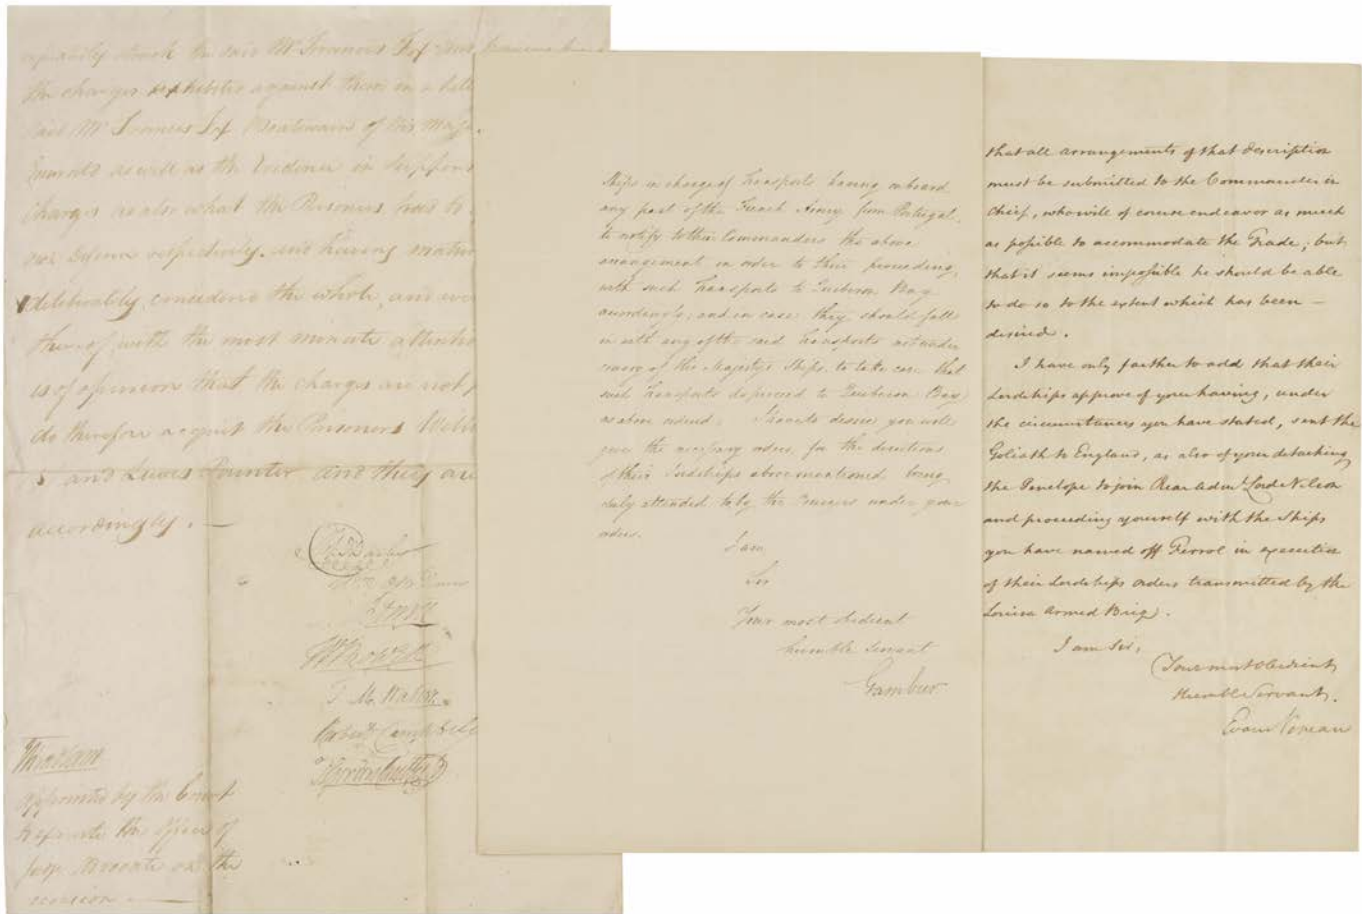 the charges exhibited against them in a
said Mr Francis Boatswain of His Maj
as well as the Evidence in support
charges as also what the Prisoners had to
own defence respectively, and having
deliberately considered the whole, and
thereof with the most minute attention
is of opinion that the charges are not
do therefore acquit the Prisoners
and Lewis Pointer and they are
accordingly. —
Robt Campbell
appointed by the Court
to execute the office of
Judge Advocate on the
occasion
Ships in charge of Transports having onboard
any part of the French Army from Portugal,
to notify to their Commanders the above
arrangement in order to their proceeding,
with such Transports to Quiberon Bay
accordingly; and in case they should fall
in with any of the said Transports not under
convoy of His Majesty's Ships, to take care that
such Transports do proceed to Quiberon Bay
as above ordered. I have to desire you will
give the necessary orders, for the directions
of their Lordships abovementioned being
duly attended to by the Cruizers under your
orders.
I am
Sir
Your most obedient
humble Servant
Gambier
that all arrangements of that description
must be submitted to the Commander in
Chief, who will of course endeavor as much
as possible to accommodate the Trade; but
that it seems impossible he should be able
to do so to the extent which has been —
desired.
I have only farther to add that their
Lordships approve of your having, under
the circumstances you have stated, sent the
Goliath to England, as also of your detaching
the Penelope to join Rear Adml. Lord Nelson
and proceeding yourself with the Ships
you have named off Ferrol in execution
of their Lordships orders transmitted by the
Louisa Armed Brig.
I am Sir,
Your most obedient
Humble Servant,
Evan Nepean